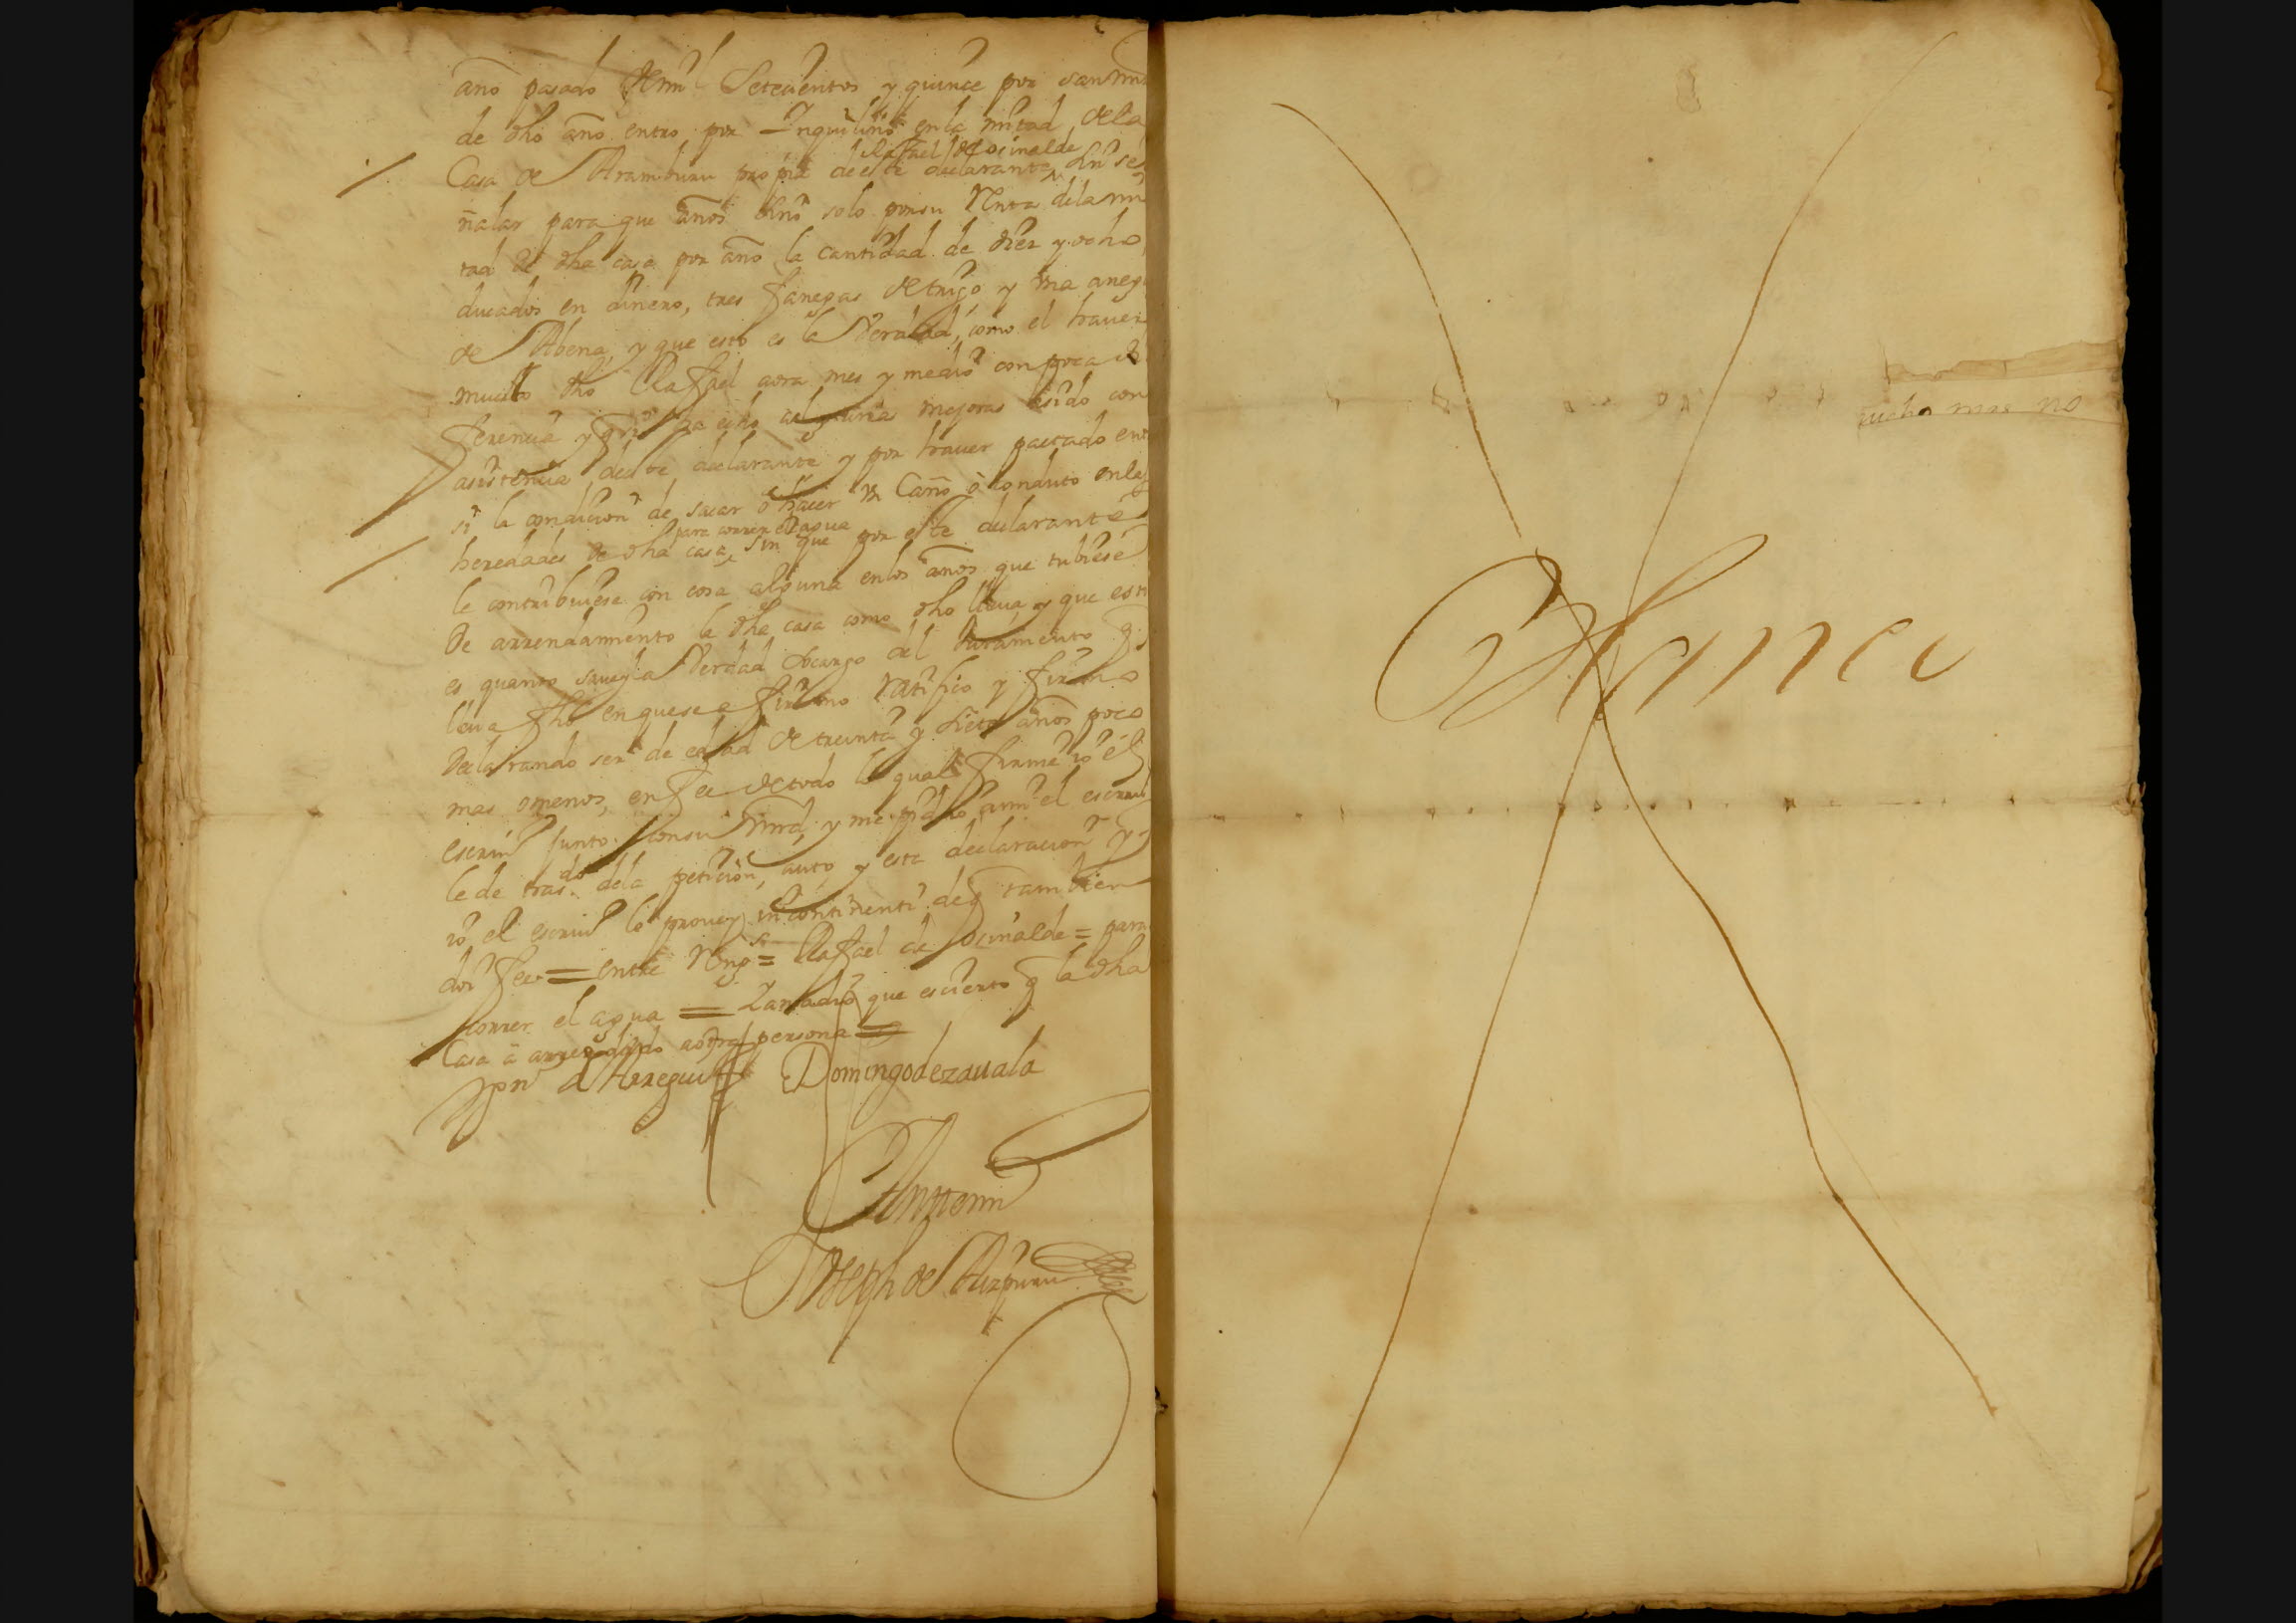 año pasado de mil Setecientos y quince por san m
de dho año entro por Inquilino en la mitad de la
Rafael de ocinalde
Casa de Aramburu propia de este declarante sin se
ñalar para que años sino solo por su Renta de la mi
tad de dha casa por año la cantidad de diez y ocho
ducados en dinero, tres fanegas de trigo y una aneg
de Abena, y que esto es la Verdad, como el hauer
muerto dho Rafael aora mes y medio con poca di
ferencia y que a echo algunas mejoras a sido con
asistencia de este declarante y por hauer pactado ent
si la condicion de sacar o hacer un Caño o conduto en las
para correr el agua
heredades de dha casa, sin que por este declarante
le contribuiese con cosa alguna en los años que tubiese
de arrendamiento la dha casa como dho lleua y que esto
es quanto saue y la Verdad so cargo del Juramento q
lleua fho en que se afirmo ratifico y firmo
declarando ser de edad de treinta y siete años poco
mas o menos, en fee de todo lo qual firme yo el
escriuº junto con su mrd y me pidio a mi el escriu
le de trasdo de la peticion, auto y esta declaracion y
yo el escriuº le prouey in continenti de q tambien
doi fee = entre Rengs = Rafael de ocinalde = para
correr el agua = Zanadio que es cierto q la dha
Casa a arrendado a otra persona =
Jpn d Arregui Domingo de zauala
Antemi
Joseph de Aizpuru
Blanca
mucho mas no